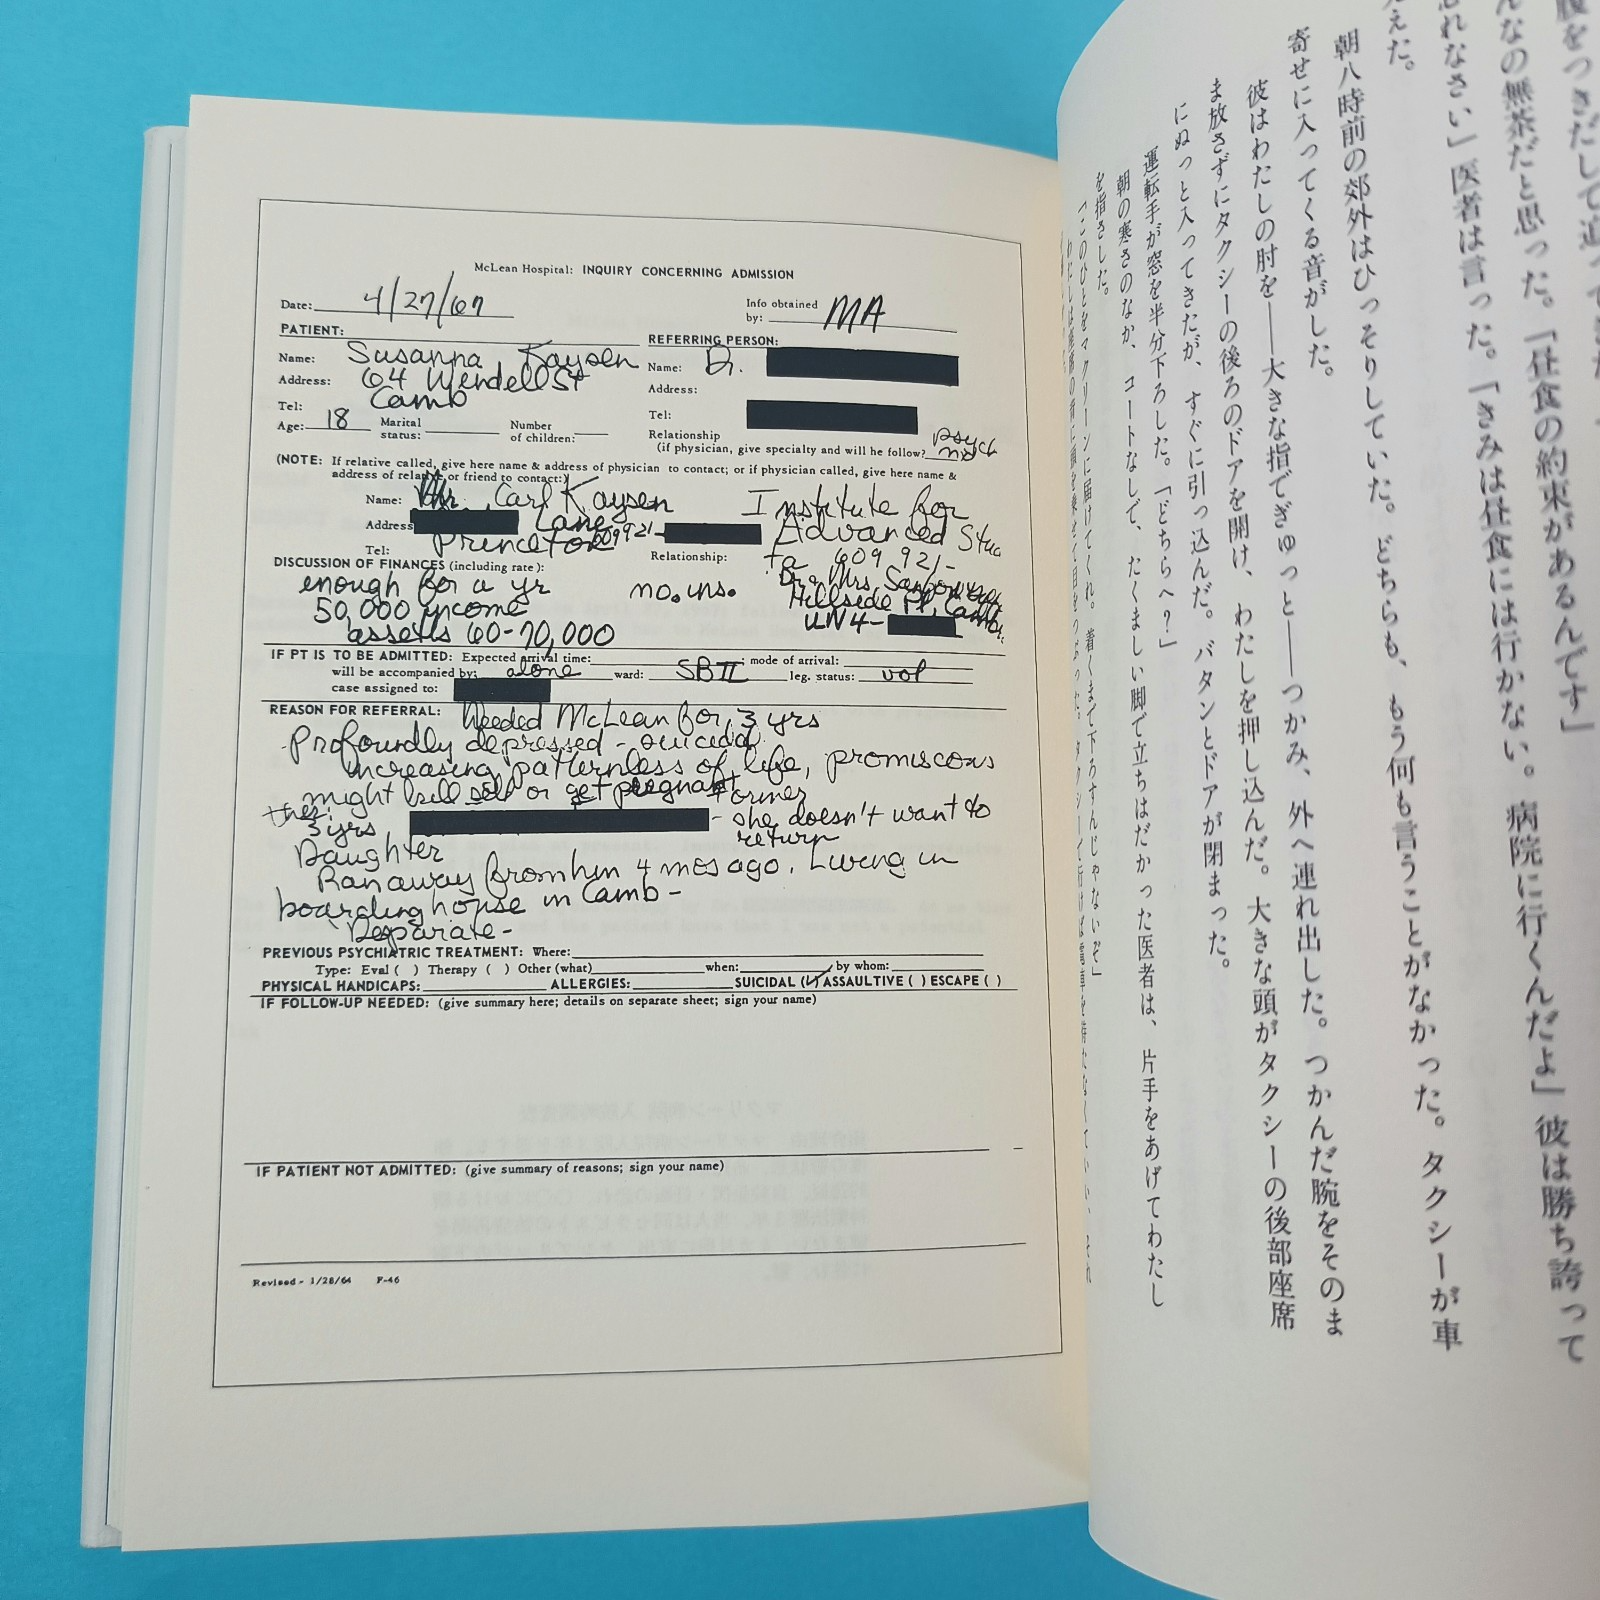 McLean Hospital: INQUIRY CONCERNING ADMISSION
Date: 4/27/67
Info obtained by: MA
PATIENT:
Name: Susanna Kaysen
Address: 64 Wendell St
Camb
Tel:
Age: 18 Marital status: Number of children:
REFERRING PERSON:
Name: Dr.
Address:
Tel:
Relationship
(if physician, give specialty and will he follow? psych
no
(NOTE: If relative called, give here name & address of physician to contact; or if physician called, give here name &
address of relative or friend to contact:)
Name: Mr. Carl Kaysen
Address Lane
Princeton
Tel: 609 921-
Relationship:
Institute for
Advanced Stu
609 921-
Dr & Mrs.
Hillside Pl, Camb.
UN4-
DISCUSSION OF FINANCES (including rate):
enough for a yr no. ins.
50,000 income
assetts 60-70,000
IF PT IS TO BE ADMITTED: Expected arrival time: ; mode of arrival:
will be accompanied by: alone ward: SB II leg. status: vol
case assigned to:
REASON FOR REFERRAL: Needed McLean for 3 yrs
Profoundly depressed - suicidal
increasing patternless of life, promiscous
might kill self or get pregnant
ther. Former
3 yrs - she doesn't want to
return
Daughter
Ran away from hm 4 mos ago. Living in
boarding house in Camb -
Desparate -
PREVIOUS PSYCHIATRIC TREATMENT: Where:
Type: Eval ( ) Therapy ( ) Other (what) when: by whom:
PHYSICAL HANDICAPS: ALLERGIES: SUICIDAL (✓) ASSAULTIVE ( ) ESCAPE ( )
IF FOLLOW-UP NEEDED: (give summary here; details on separate sheet; sign your name)
IF PATIENT NOT ADMITTED: (give summary of reasons; sign your name)
Revised - 1/28/64 F-46
んなの無茶だと思った。「昼食の約束があるんです」
れなさい」医者は言った。「きみは昼食には行かない。病院に行くんだよ」彼は勝ち誇って
えた。
朝八時前の郊外はひっそりしていた。どちらも、もう何も言うことがなかった。タクシーが車
寄せに入ってくる音がした。
彼はわたしの肘を――大きな指でぎゅっと――つかみ、外へ連れ出した。つかんだ腕をそのま
ま放さずにタクシーの後ろのドアを開け、わたしを押し込んだ。大きな頭がタクシーの後部座席
にぬっと入ってきたが、すぐに引っ込んだ。バタンとドアが閉まった。
運転手が窓を半分下ろした。「どちらへ?」
朝の寒さのなか、コートなしで、たくましい脚で立ちはだかった医者は、片手をあげてわたし
を指さした。
「このひとをマクリーンに届けてくれ。着くまで下ろすんじゃないぞ」